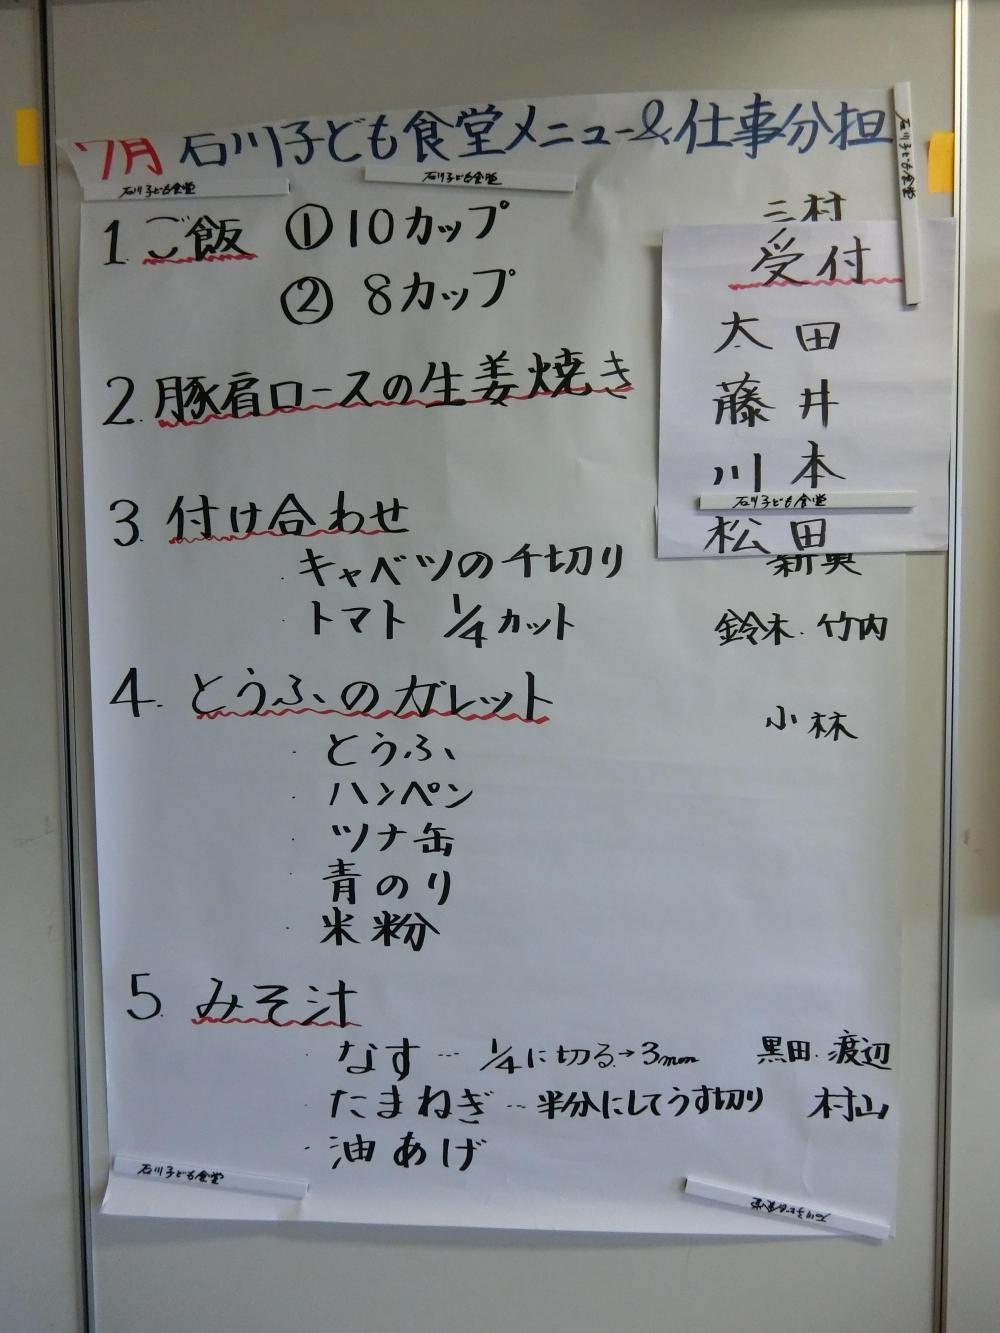 7月 石川子ども食堂メニュー&仕事分担
石川子ども食堂
石川子ども食堂
石川子ども食堂
1. ご飯 ① 10カップ 三村
② 8カップ
受付
太田
藤井
川本
石川子ども食堂
松田
2. 豚肩ロースの生姜焼き
3. 付け合わせ
・キャベツの千切り
・トマト 1/4カット 鈴木・竹内
4. とうふのガレット 小林
・とうふ
・ハンペン
・ツナ缶
・青のり
・米粉
5. みそ汁
・なす… 1/4に切る→3mm 黒田・渡辺
・たまねぎ…半分にしてうす切り 村山
・油あげ
石川子ども食堂
石川子ども食堂